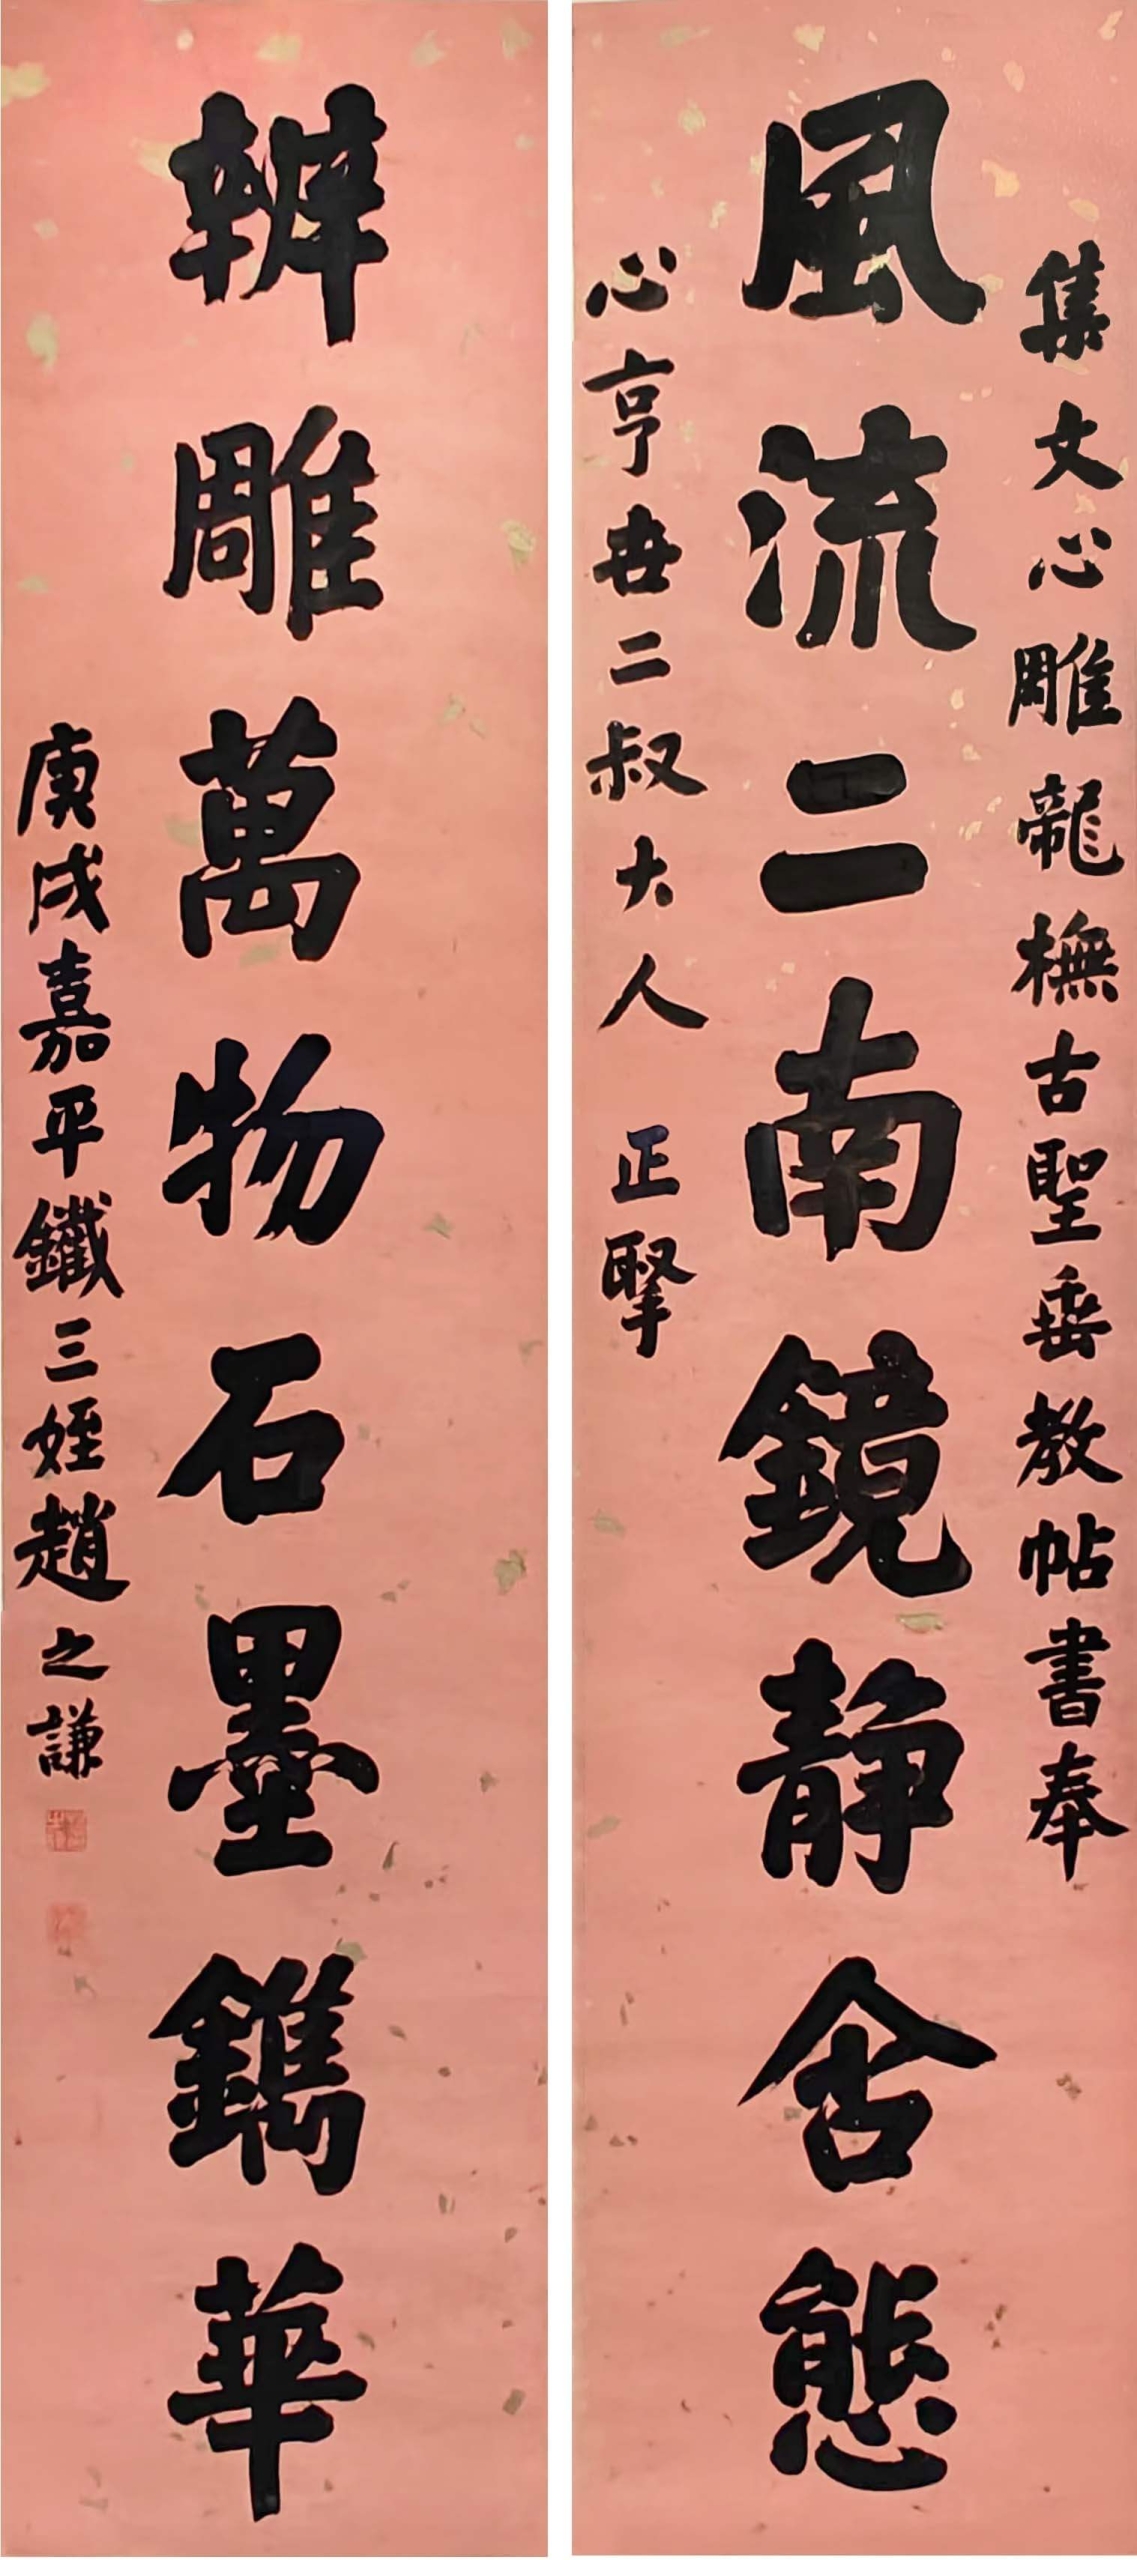 集文心雕龍橅古聖垂教帖書奉
風流二南鏡静含態
心亨世二叔大人 正擥
辨雕萬物石墨鐫華
庚戌嘉平鐵三姪趙之謙